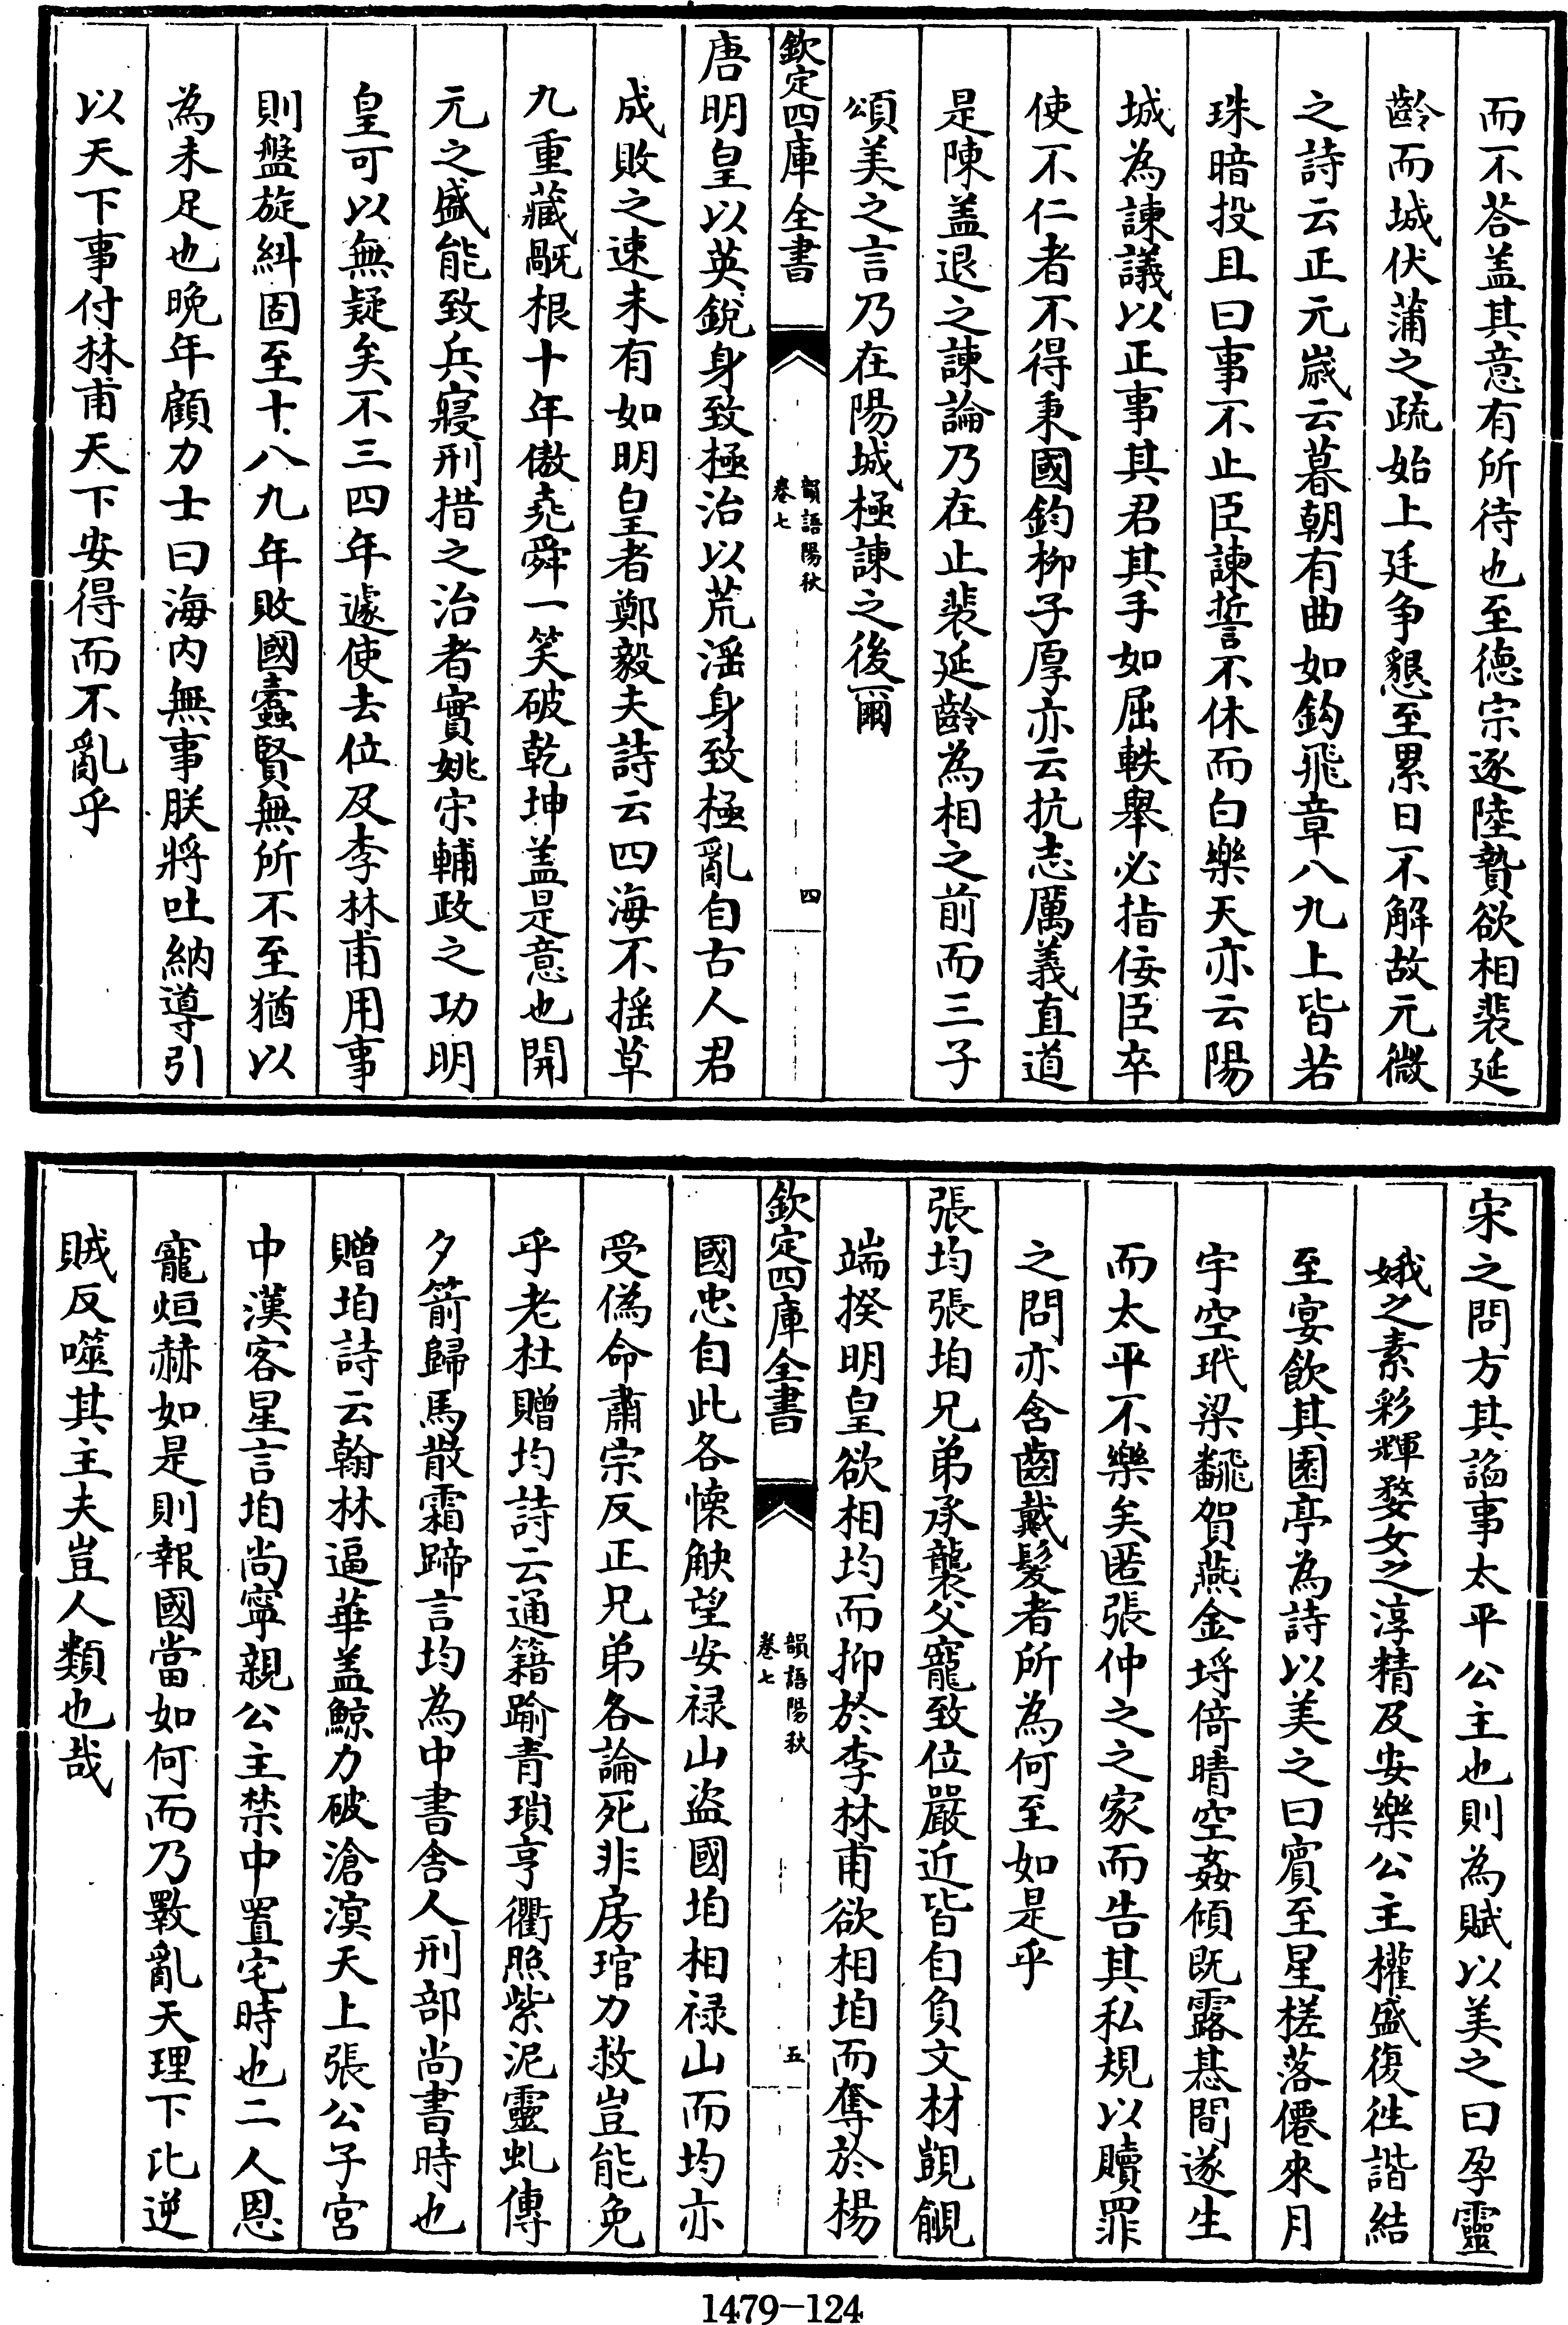 而不荅盖其意有所待也至德宗逐陸贄欲相裴延
齡而城伏蒲之疏始上廷争懇至累日不解故元微
之詩云正元歳云暮朝有曲如鈎飛章八九上皆若
珠暗投且曰事不止臣諫誓不休而白樂天亦云陽
城為諫議以正事其君其手如屈軼舉必指佞臣卒
使不仁者不得秉國鈞栁子厚亦云抗志厲義直道
是陳盖退之諫論乃在止裴延齡為相之前而三子
頌美之言乃在陽城極諫之後爾
欽定四庫全書
韻語陽秋
卷七
四
唐明皇以英銳身致極治以荒滛身致極亂自古人君
成敗之速未有如明皇者鄭毅夫詩云四海不揺草
九重藏旤根十年傲堯舜一笑破乾坤盖是意也開
元之盛能致兵寢刑措之治者實姚宋輔政之功明
皇可以無疑矣不三四年遽使去位及李林甫用事
則盤旋糾固至十八九年敗國蠧賢無所不至猶以
為未足也晚年顧力士曰海内無事朕將吐納導引
以天下事付林甫天下安得而不亂乎
宋之問方其謟事太平公主也則為賦以美之曰孕靈
娥之素彩輝婺女之淳精及安樂公主權盛復徃諧結
至宴飲其園亭為詩以美之曰賓至星槎落僊來月
宇空玳梁翻賀燕金埒倚晴空姦傾既露惎間遂生
而太平不樂矣匿張仲之之家而告其私規以贖罪
之問亦含齒戴髮者所為何至如是乎
張均張垍兄弟承襲父寵致位嚴近皆自負文材覬覦
端揆明皇欲相均而抑於李林甫欲相垍而奪於楊
欽定四庫全書
韻語陽秋
卷七
五
國忠自此各懐觖望安禄山盗國垍相禄山而均亦
受偽命肅宗反正兄弟各論死非房琯力救豈能免
乎老杜贈均詩云通籍踰青瑣亨衢照紫泥靈虬傳
夕箭歸馬散霜蹄言均為中書舎人刑部尚書時也
贈垍詩云翰林逼華盖鯨力破滄溟天上張公子宮
中漢客星言垍尚寧親公主禁中置宅時也二人恩
寵烜赫如是則報國當如何而乃斁亂天理下比逆
賊反噬其主夫豈人類也哉
1479-124